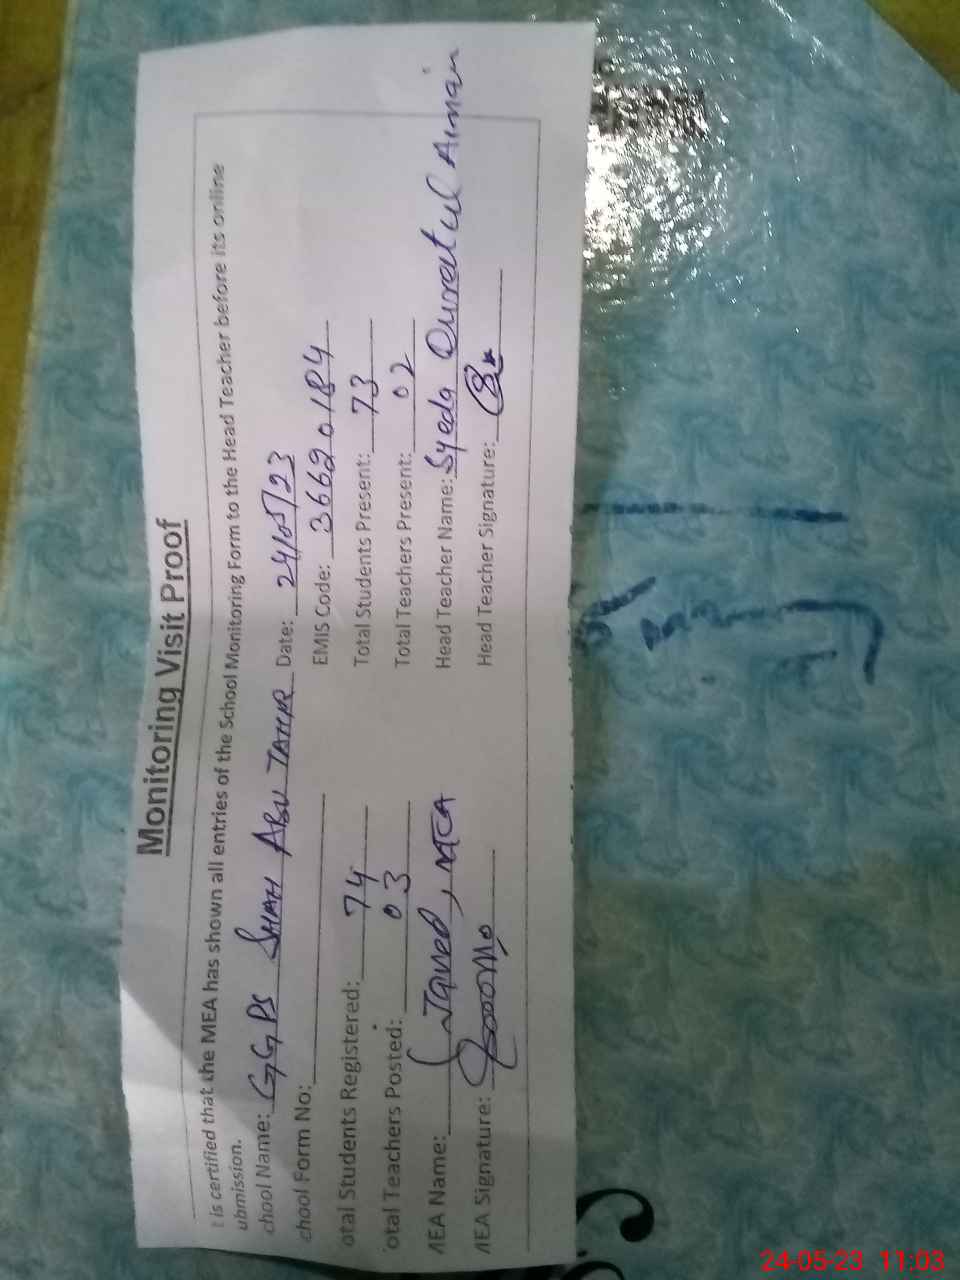 Monitoring Visit Proof
t is certified that the MEA has shown all entries of the School Monitoring Form to the Head Teacher before its online
ubmission.
chool Name: GGPS SHAH ABU TAHIR Date: 24/05/23
chool Form No: EMIS Code: 36620184
otal Students Registered: 74 Total Students Present: 73
otal Teachers Posted: 03 Total Teachers Present: 02
MEA Name: Javed, Head Teacher Name: Syeda Qurratul Aimain
MEA Signature: Head Teacher Signature:
24-05-23 11:03